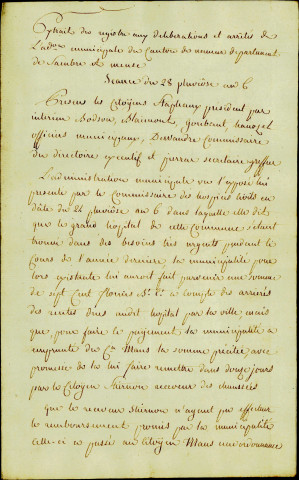 Extrait des registre aux deliberations et arrêtés de
L'adon municipale du Canton de namur departement
de Sambre et meuse
Seance du 28 pluviôse an 6
Presens les Citoyens Stapleaux president par
interim Bodson, Blaimont,
officiers municipaux, Commissaire
du directoire executif et secretaire greffier
L'administration municipale vu l'exposé lui
presenté par le Commissaire des hospices civils en
date du 24 pluviôse an 6 dans laquelle elle dit
que le grand hopital de cette Commune s'etant
trouvé dans des besoins très urgents pendant le
cours de l'année derniere la municipalité pour
lors existante lui auroit fait parvenir une somme
de sept Cent florins à compte des arrierés
des rentes dues audit hopital par la ville mais
que pour faire le payement la municipalité a
emprunté du Cen Maus la somme precitée avec
promesse de la lui faire remettre dans douze jours
par le Citoyen receveur des chaussées
Que le receveur n'ayant pu effectuer
le remboursement promis par la municipalité
celle-ci a passée au Citoyen Maus une ordonnance